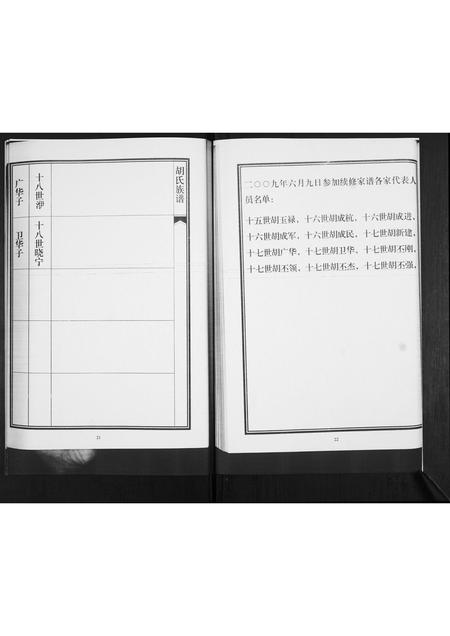 胡氏族谱
十八世
广华子
十八世晓宁
卫华子
21
二〇〇九年六月九日参加续修家谱各家代表人
员名单：
十五世胡玉禄，十六世胡成杭，十六世胡成进，
十六世胡成军，十六世胡成民，十七世胡新建，
十七世胡广华，十七世胡卫华，十七世胡丕刚，
十七世胡丕领，十七世胡丕杰，十七世胡丕强，
22